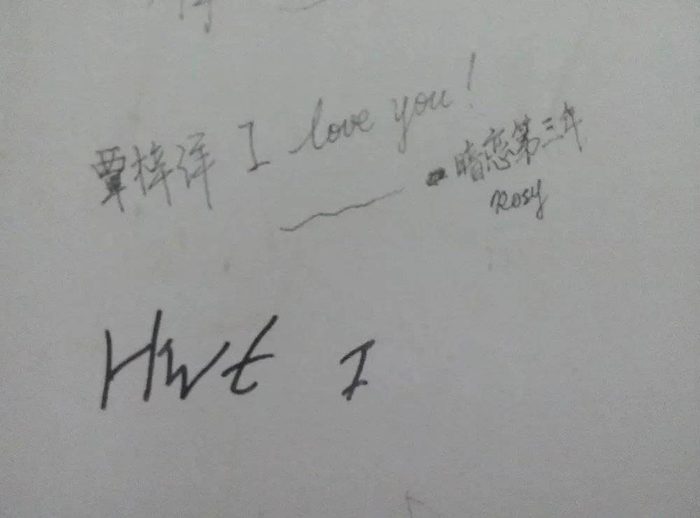 覃梓洋 I love you!
暗恋第三年
Rosy
Hwt I